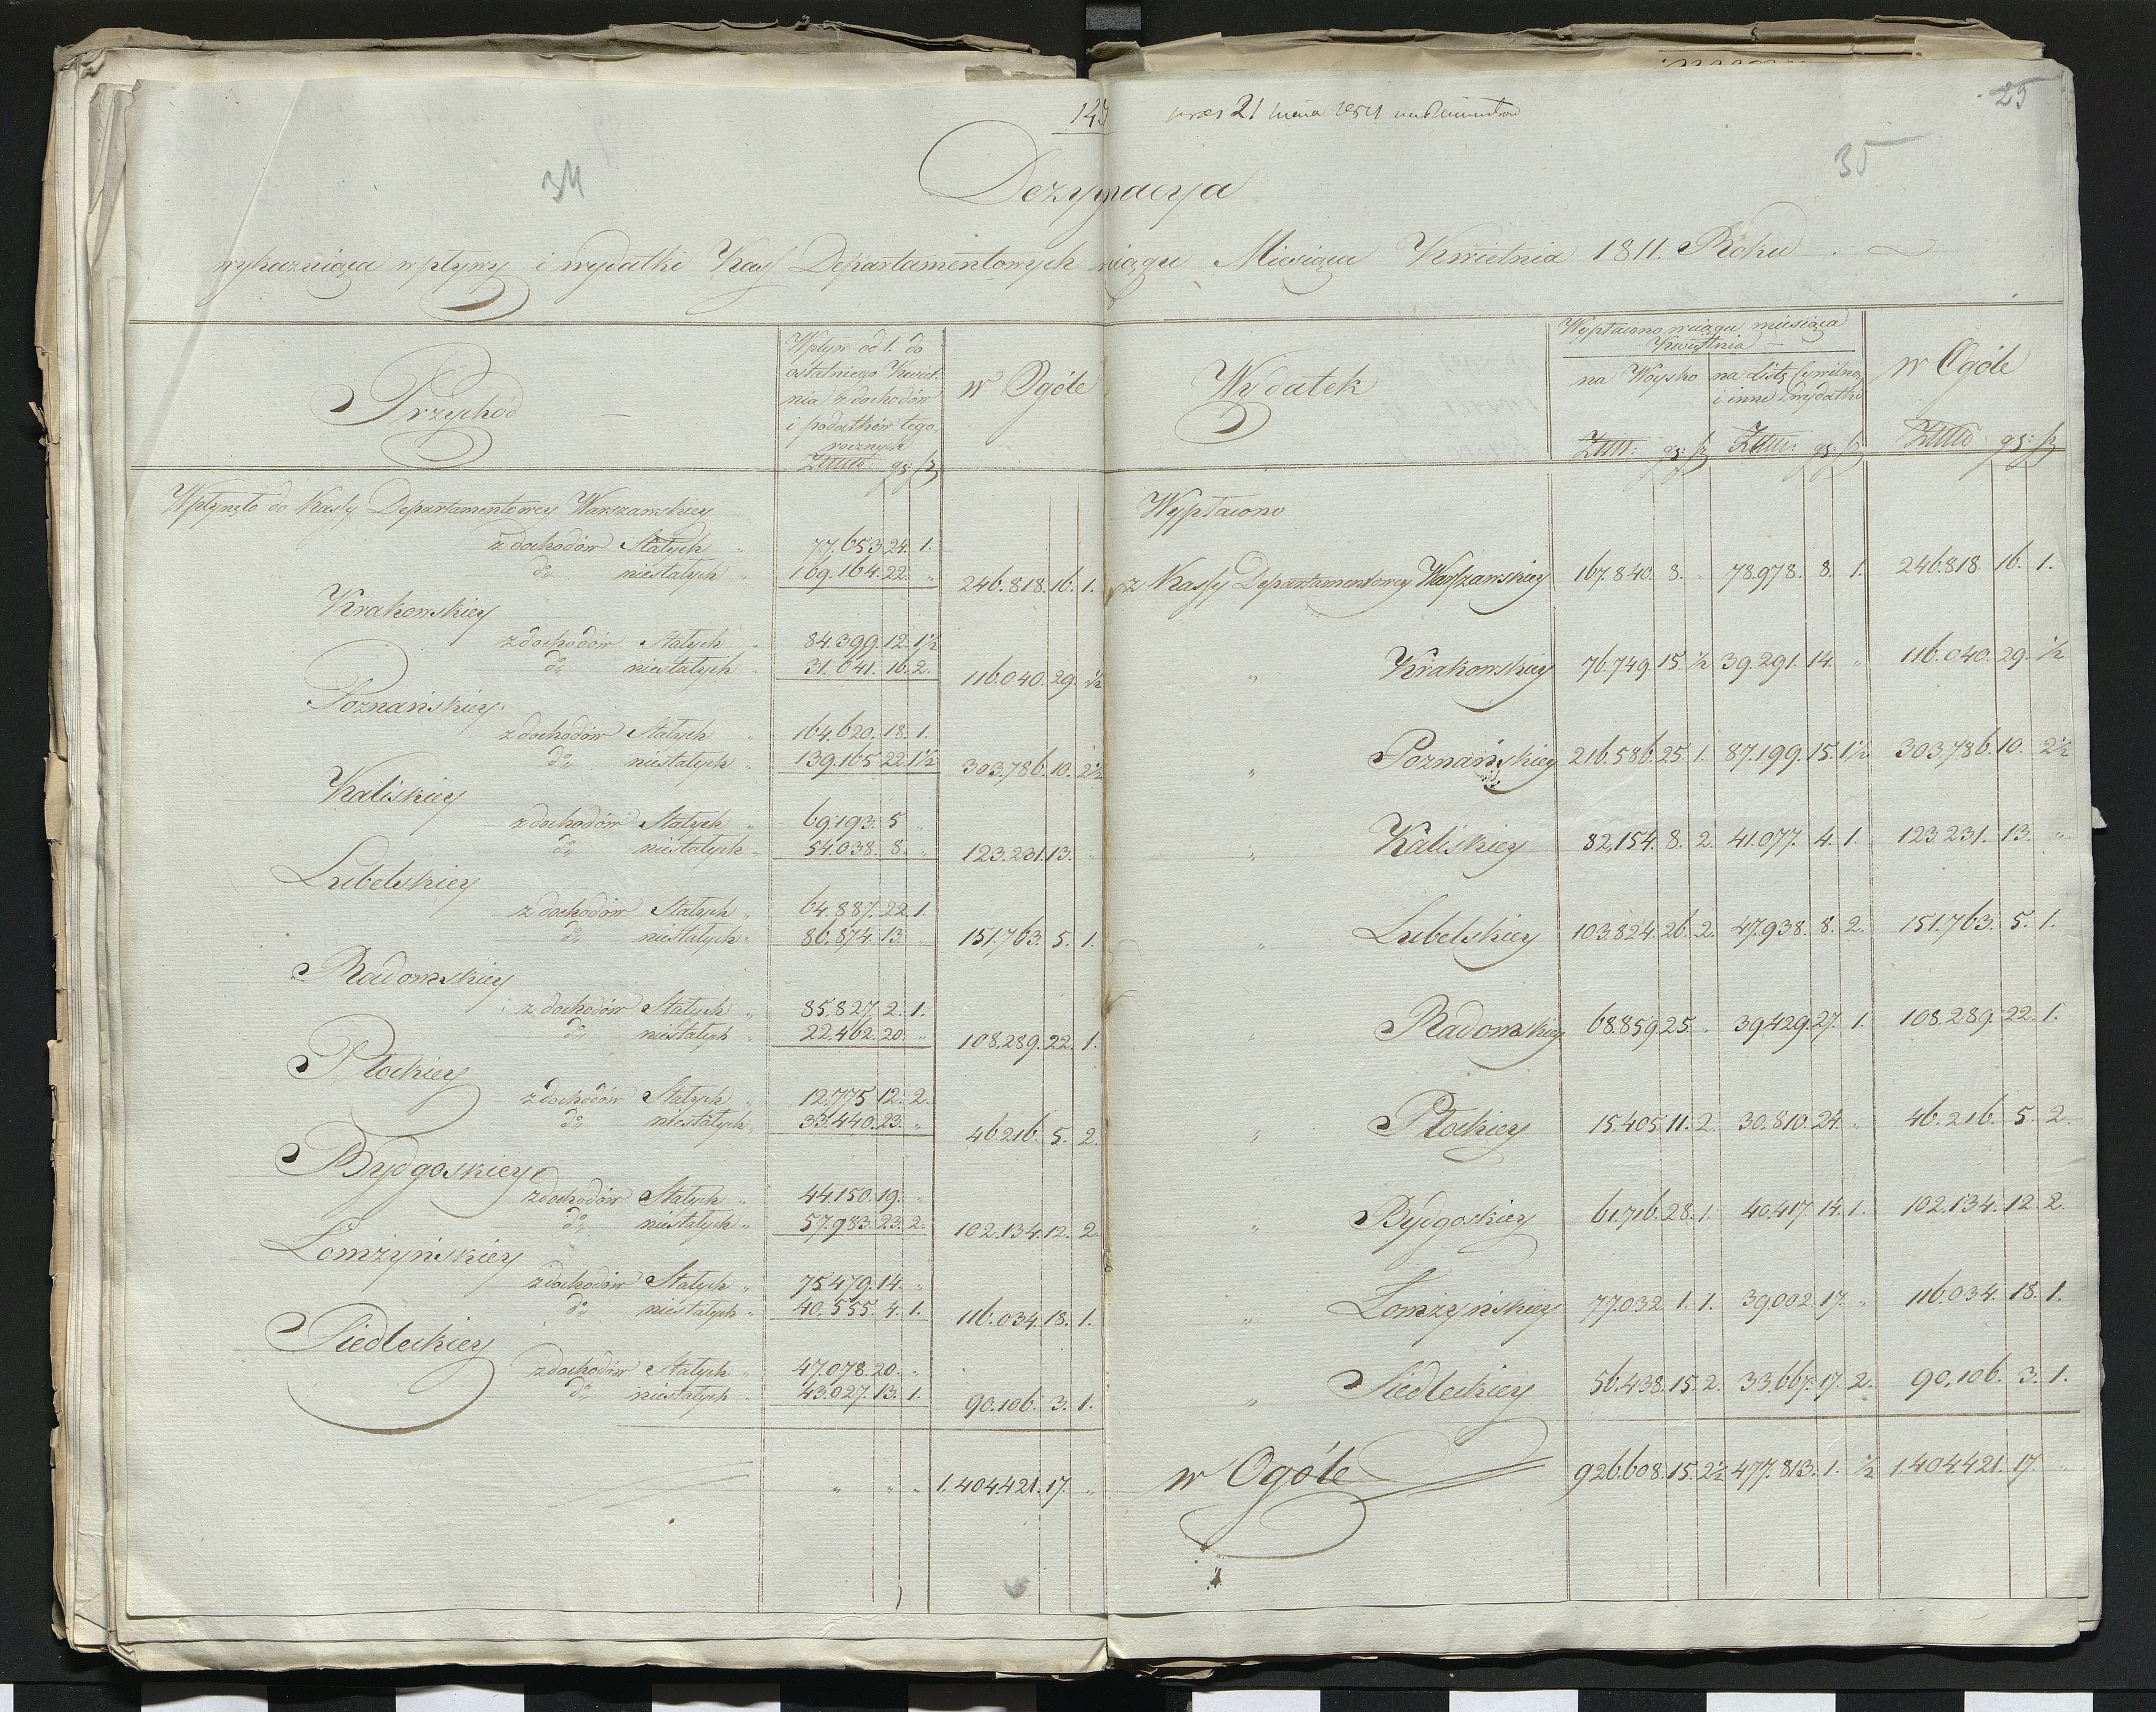 149
25
34
35
Dezygnacya
wykazuiąca wpływy i wydatki Kass Departamentowych w ciągu Miesiąca Kwietnia 1811. Roku
Przychód
Wpływ od 1. do
ostatniego Kwiet-
nia z dochodów
i podatków tego-
rocznych
gr:
w Ogóle
Wpłynęło do Kassy Departamentowey Warszawskiey
z dochodów Stałych „ 77.653. 24. 1.
do „ niestałych „ 169.164. 22. „ 246.818. 16. 1.
Krakowskiey
z dochodów Stałych „ 84.399. 12. 1½
do „ niestałych „ 31.641. 16. 2. 116.040. 29. ½
Poznańskiey
z dochodów Stałych „ 164.620. 18. 1.
do „ niestałych „ 139.165 22 1½ 303.786. 10. 2½
Kaliskiey
z dochodów Stałych „ 69.193. 5 „
do „ niestałych „ 54.038. 8. „ 123.231. 13. „
Lubelskiey
z dochodów Stałych „ 64.887. 22. 1.
do „ niestałych „ 86.874. 13. „ 151.763. 5. 1.
Radomskiey
z dochodów Stałych „ 85.827. 2. 1.
do „ niestałych „ 22.462. 20. „ 108.289. 22. 1.
Płockiey
z dochodów Stałych „ 12.775 12. 2.
do „ niestałych „ 33.440. 23. „ 46.216. 5. 2.
Bydgoskiey
z dochodów Stałych „ 44.150. 19. „
do „ niestałych „ 57.983. 23. 2. 102.134. 12. 2.
Łomżyńskiey
z dochodów Stałych „ 75.479. 14. „
do „ niestałych „ 40.555. 4. 1. 116.034. 18. 1.
Siedleckiey
z dochodów Stałych „ 47.078. 20. „
do „ niestałych „ 43.027. 13. 1. 90.106. 3. 1.
„ „ „ 1.404.421. 17. „
Wydatek
Wypłacono w ciągu miesiąca
Kwietnia
na Woysko
na Listę Cywilną
i inne wydatki
w Ogóle
gr: gr: gr:
Wypłacono
z Kassy Departamentowey Warszawskiey 167.840. 8. „ 78.978. 8. 1. 246.818. 16. 1.
„ Krakowskiey 76.749. 15. ½ 39.291. 14. „ 116.040. 29. ½
„ Poznańskiey 216.586. 25. 1. 87.199. 15. 1½ 303.786. 10. 2½
„ Kaliskiey 82.154. 8. 2. 41.077. 4. 1. 123.231. 13. „
„ Lubelskiey 103.824. 26. 2. 47.938. 8. 2. 151.763. 5. 1.
„ Radomskiey 68.859. 25. „ 39.429. 27. 1. 108.289. 22. 1.
„ Płockiey 15.405. 11. 2. 30.810. 24. „ 46.216. 5. 2.
„ Bydgoskiey 61.716. 28. 1. 40.417. 14. 1. 102.134. 12. 2.
„ Łomżyńskiey 77.032. 1. 1. 39.002. 17. „ 116.034. 18. 1.
„ Siedleckiey 56.438. 15. 2. 33.667. 17. 2. 90.106. 3. 1.
w Ogóle 926.608. 15. 2½ 477.813. 1. ½ 1.404.421. 17. „